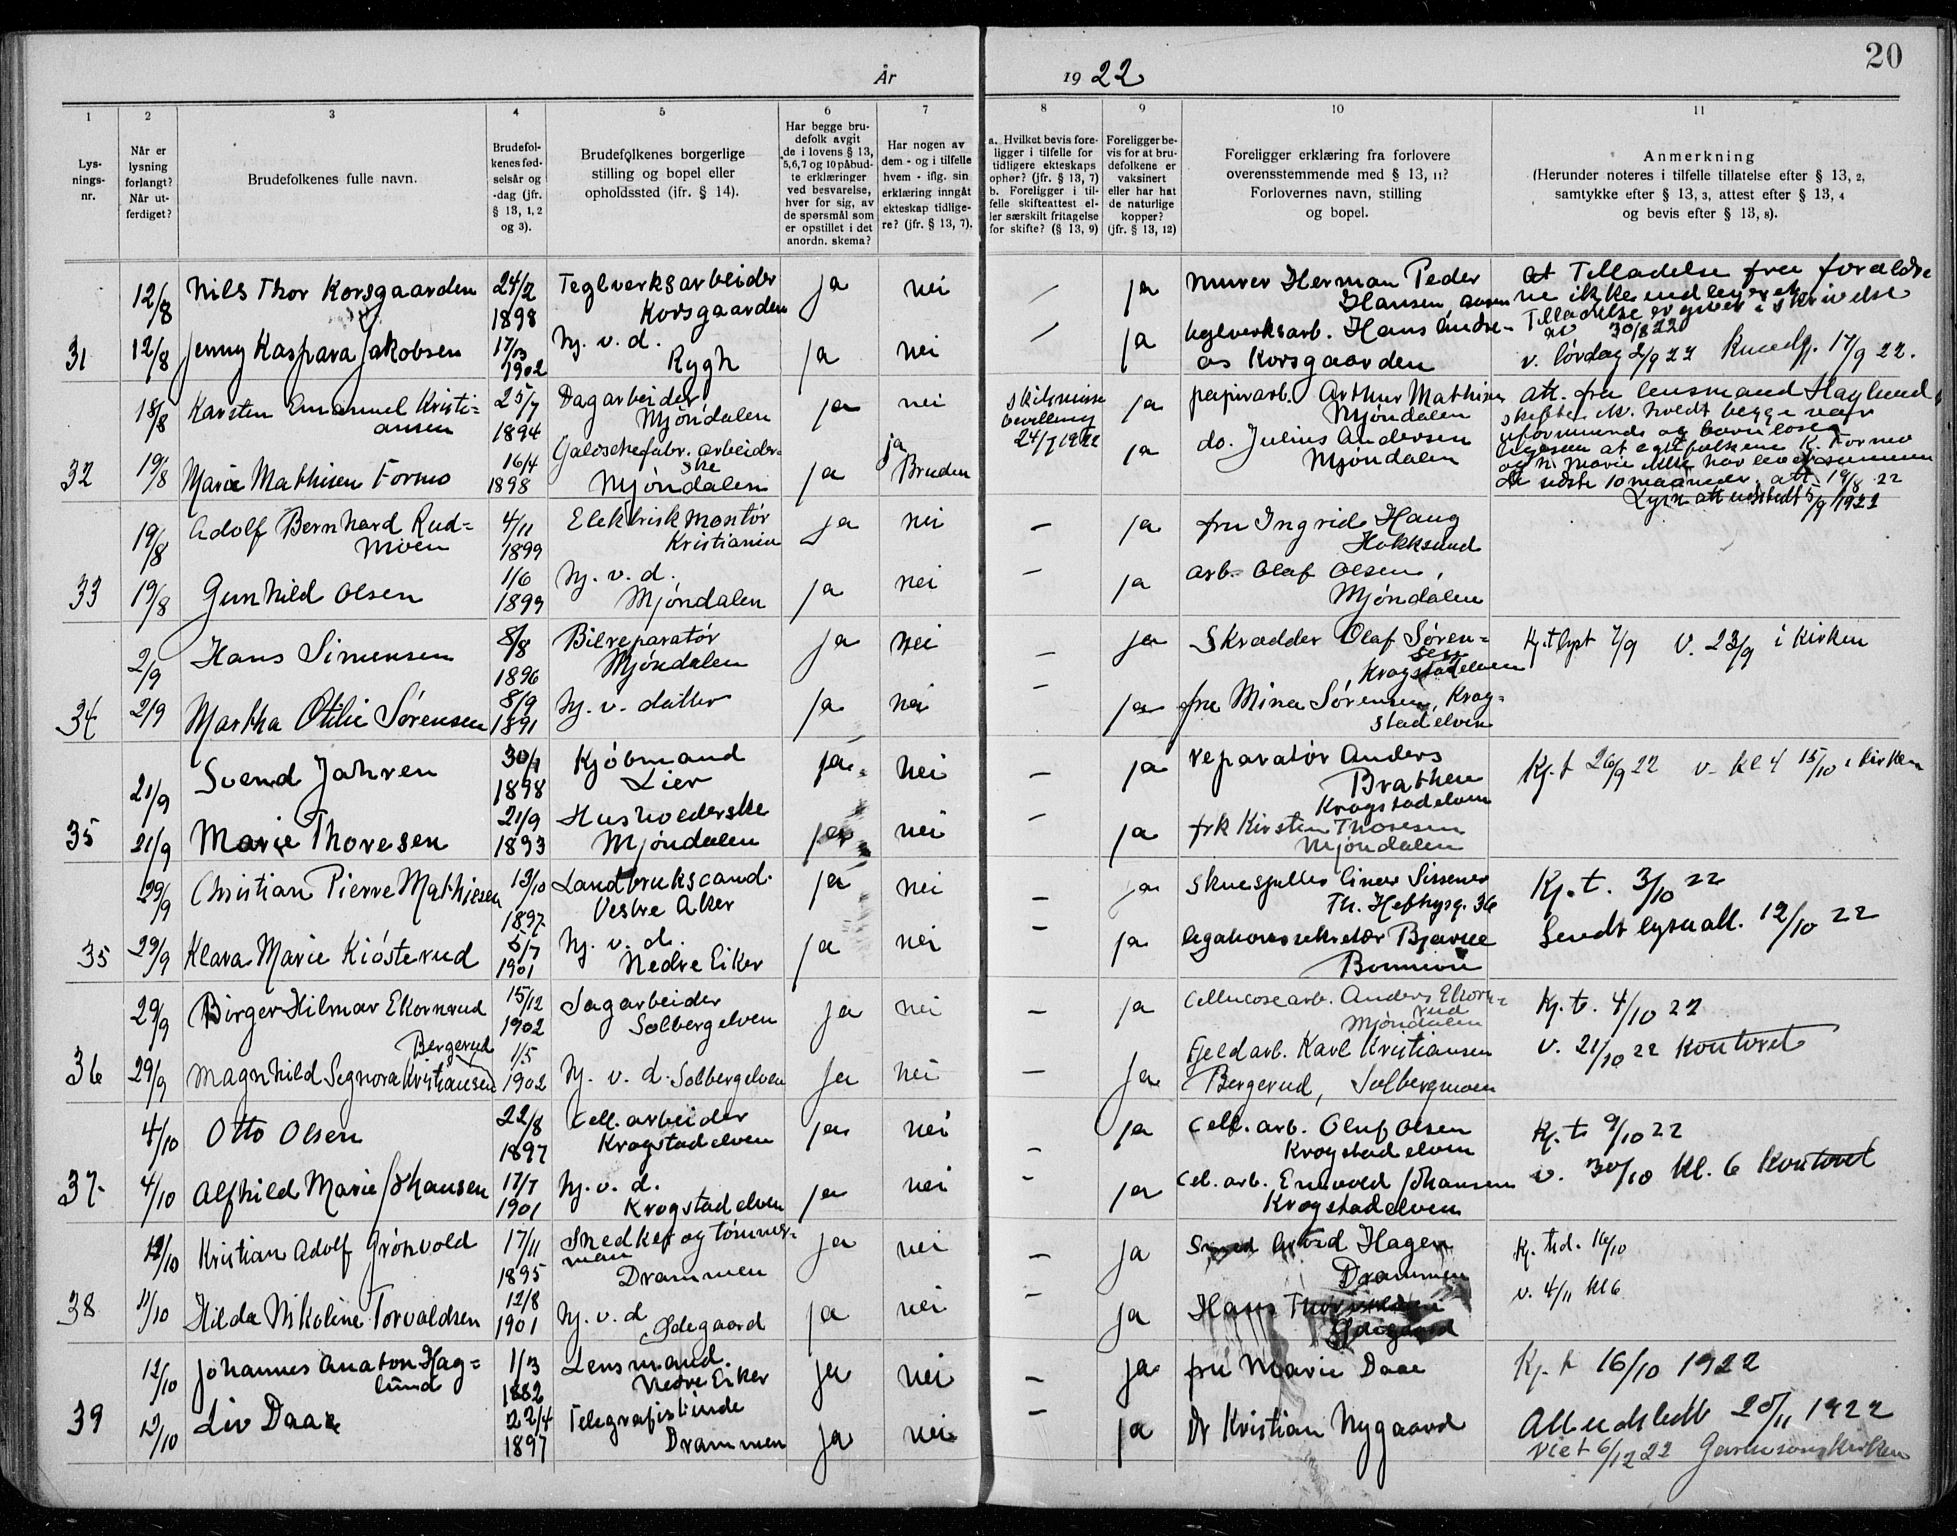 20
År 1922
1 2 3 4 5 6 7 8 9 10 11
Lys-
nings-
nr.
Når er
lysning
forlangt?
Når ut-
ferdiget?
Brudefolkenes fulle navn.
Brudefol-
kenes fød-
selsår og
-dag (jfr.
§ 13, 1, 2
og 3).
Brudefolkenes borgerlige
stilling og bopel eller
opholdssted (jfr. § 14).
Har begge bru-
defolk avgit
de i lovens § 13,
5,6,7 og 10 påbud-
te erklæringer
ved besvarelse,
hver for sig, av
de spørsmål som
er opstillet i det
anordn. skema?
Har nogen av
dem - og i tilfelle
hvem - iflg. sin
erklæring inngåt
ekteskap tidlige-
re? (jfr. § 13, 7).
a. Hvilket bevis fore-
ligger i tilfelle for
tidligere ekteskaps
ophør? (jfr. § 13, 7)
b. Foreligger i til-
felle skifteattest el-
ler særskilt fritagelse
for skifte? (§ 13, 9)
Foreligger be-
vis for at bru-
defolkene er
vaksinert
eller har hat
de naturlige
kopper?
(jfr. § 13, 12)
Foreligger erklæring fra forlovere
overensstemmende med § 13, 11?
Forlovernes navn, stilling
og bopel.
Anmerkning
(Herunder noteres i tilfelle tillatelse efter § 13, 2,
samtykke efter § 13, 3, attest efter § 13, 4
og bevis efter § 13, 8).
12/8 Nils Thor Korsgaarden 24/2 1898 Teglverksarbeider
Korsgaarden ja nei / ja murer Herman Peder
Hansen, Aasen
at Tilladelse fra forældre
ne ikke indleveret
Tilladelse er givet i skrivelse
av 30/8 22
31 12/8 Jenny Kaspara Jakobsen 17/3 1902 hj. v. d.
Rygh ja nei / ja teglverksarb. Hans Andre-
as Korsgaarden
v. lørdag 2/9 22 17/9 22.
18/8 Karsten Emanuel Kristi-
ansen 25/7 1894 Dagarbeider
Mjøndalen ja nei skilsmisse
bevilling
24/7 1922 ja papirarb. Arthur Mathisen
Mjøndalen
att. fra lensmand Haglund,
skiftet hvedt begge var
uformuende og barnløse
ligesom at egtefolkene K. Formo
og h. Marie ikke har levet sammen
de sidste 10 maaneder. att. 19/8 22
Lysn. att utstedt 5/9 1922
32 19/8 Marie Mathisen Formo 16/4 1898 Galoschefabr. arbeider-
ske
Mjøndalen ja ja
Bruden ja do. Julius Andersen
Mjøndalen
19/8 Adolf Bernhard Rud-
moen 4/11 1899 Elektrisk montør
Kristiania ja nei – ja fru Ingrid Haug
Hokksund
33 19/8 Gunhild Olsen 1/6 1899 hj. v. d.
Mjøndalen ja nei – ja arb. Olaf Olsen,
Mjøndalen
2/9 Hans Simensen 8/8 1896 Bilreparatør
Mjøndalen ja nei – ja Skrædder Olaf Søren-
sen
Krogstadelven
Kj. t lyst 7/9 V. 23/9 i Kirken
34 2/9 Martha Otilie Sørensen 8/9 1891 hj. v. datter ja nei – ja fru Mina Sørensen, Krog-
stadelven
21/9 Svend Jahren 30/1 1898 Kjøbmand
Lier ja nei – ja reparatør Anders
Brathen
Krogstadelven
Kj. t 26/9 22 v. kl 4 15/10 i kirken
35 21/9 Marie Thoresen 21/9 1893 Husholderske
Mjøndalen ja nei – ja frk Kirsten Thoresen
Mjøndalen
29/9 Christian Pierre Mathiesen 13/10 1897 Landbrukscand.
Vestre Aker ja nei – ja Skuespiller Einar Sissener
Th. Heftyesg. 36
Kj. t. 3/10 22
35 29/9 Klara Marie Kiøsterud 5/7 1901 hj. v. d.
Nedre Eiker ja nei – ja legationssekretær Bjarne
Bonnevie
Sendt lysn att. 12/10 22
29/9 Birger Hilmar Ekornrud 15/12 1902 Sagarbeider
Solbergelven ja nei – ja Cellulosearb. Anders Ekorn-
rud
Mjøndalen
Kj. t. 4/10 22
Bergerud
36 29/9 Magnhild Signora Kristiansen 1/5 1902 hj. v. d. Solbergelven ja nei – ja Fjeldarb. Karl Kristiansen
Bergerud, Solbergmoen
v. 21/10 22 Kontoret
4/10 Otto Olsen 22/8 1897 Cell. arbeider
Krogstadelven ja nei – ja Cell. arb. Oluf Olsen
Krogstadelven
Kj. t. 9/10 22
37. 4/10 Alfhild Marie Johansen 17/7 1901 hj. v. d.
Krogstadelven ja nei – ja Cel. arb. Enevold Johansen
Krogstadelven
v. 30/10 kl. 6 Kontoret
12/10 Kristian Adolf Grönvold 17/11 1895 Snedker og tømmer-
man
Drammen ja nei – ja Smed Hagen
Drammen
Kj. tid. 16/10
38 11/10 Hilda Nikoline Torvaldsen 12/8 1901 hj. v. d
Ødegaard ja nei – ja Hans
Ødegaard
v. 4/11 kl 6
12/10 Johannes Anaton Hag-
lund 1/3 1882 Lensmand.
Nedre Eiker ja nei – ja fru Marie Daae
Kj. t 16/10 1922
39 12/10 Liv Daae 22/4 1897 Telegrafistinde
Drammen ja nei – ja Dr Kristian Nygaard
Att udstedt 25/11 1922
Viet 6/12 22 Garnisonskirken